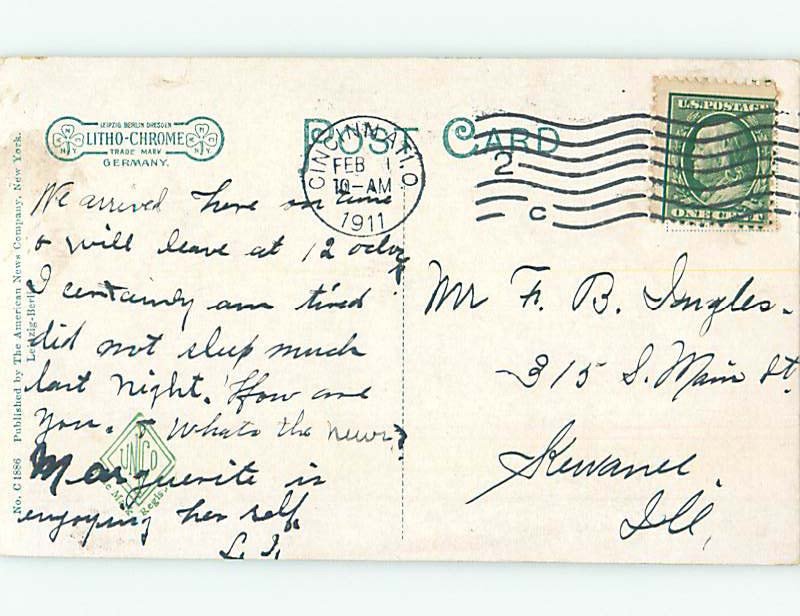 LEIPZIG BERLIN DRESDEN
LITHO-CHROME
TRADE MARK
GERMANY.
POST CARD
CINCINNATI, O.
FEB 1
10-AM
1911
2
C
U.S. POSTAGE
ONE CENT
No. C 1886 Published by The American News Company, New York.
Leipzig-Berlin
We arrived here on time
& will leave at 12 oclock
I certainly am tired
did not sleep much
last night. How are
you. & Whats the news?
Marguerite is
enjoying her self.
L. I.
UNICO
Regis.
Mr F. B. Ingles.
315 S. Main St
Kewanee.
Ill,